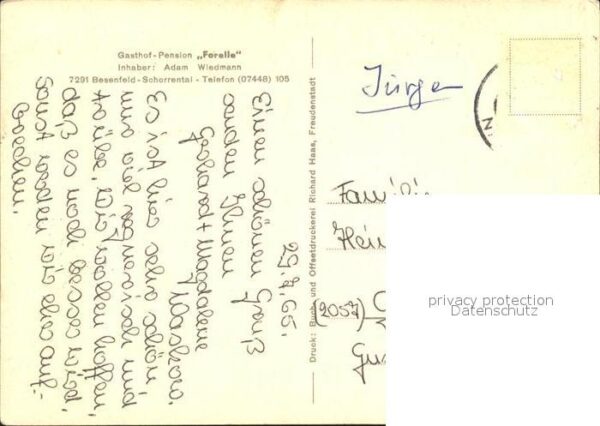 Gasthof-Pension „Forelle"
Inhaber: Adam Wiedmann
7291 Besenfeld-Schorrental - Telefon (07448) 105
29. 7. 65.
Einen schönen Gruß
senden Ihnen
Gerhard + Magdalene
Es ist hier sehr schön
nur viel regnerisch und
trübe. Wir wollen hoffen,
daß es noch besser wird.
Sonst werden wir eher auf-
brechen.
Druck: Buch- und Offsetdruckerei Richard Haas, Freudenstadt
Jürgen
Famili
Hein
(2057)
privacy protection
Datenschutz